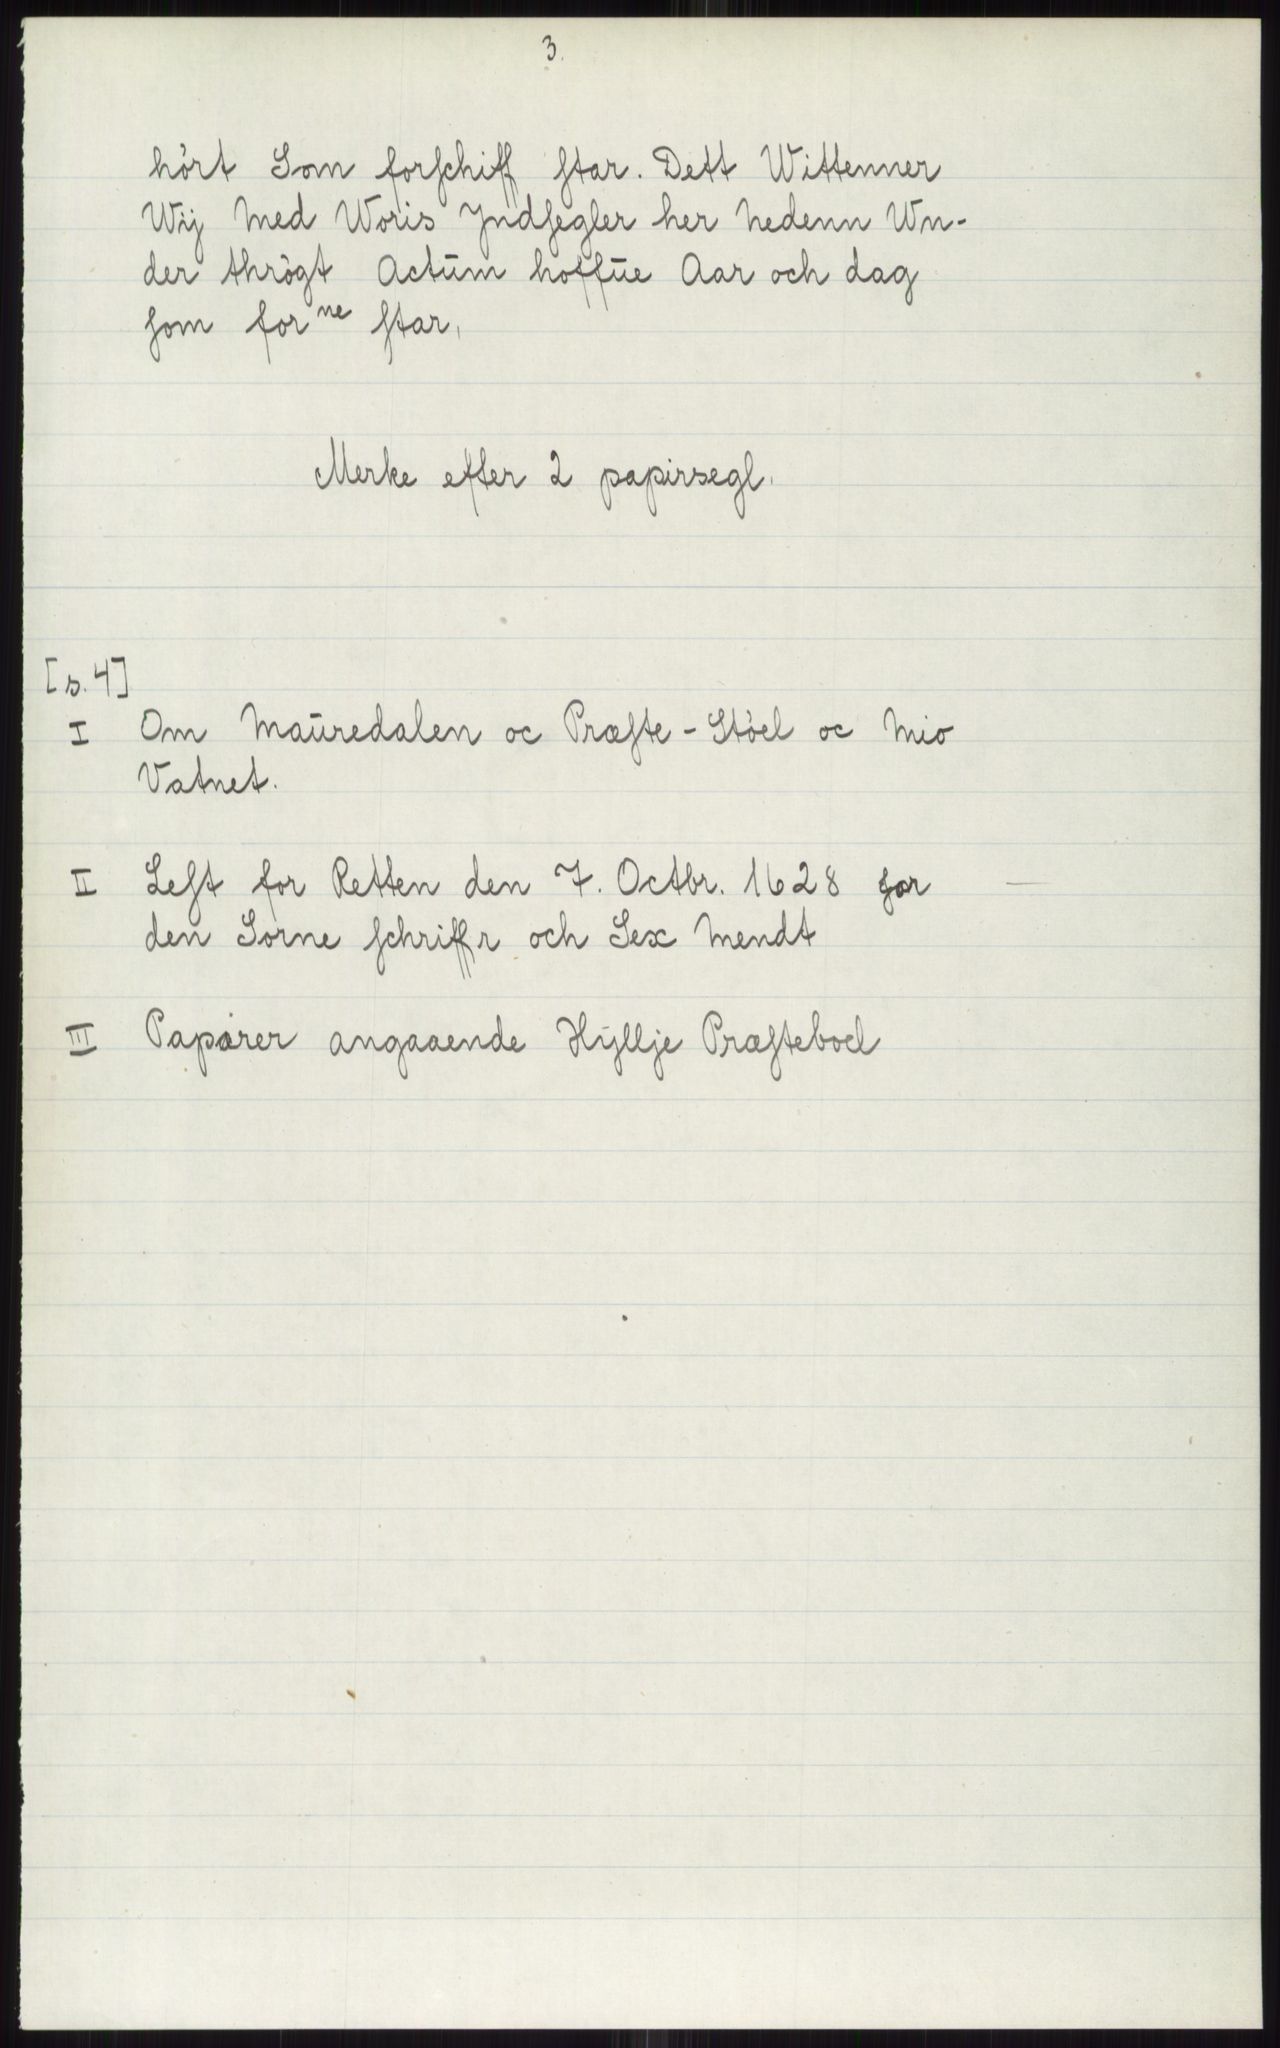 3.
hört Som forschiff star. Dett Wittenner
Wij Med Woris Jndsegler her Nedenn Wn-
der thrögt Actūm hoffūe Aar och dag
som for ne star.
Merke efter 2 papirsegl.
[s. 4]
I Om Maūredalen oc Præste-Stöel oc Mio
Vatnet.
II Lest for Retten den 7. Octbr. 1628 for
den Sorne schriffr och Sex Mendt
III Papirer angaaende Hÿllje Præsteboel